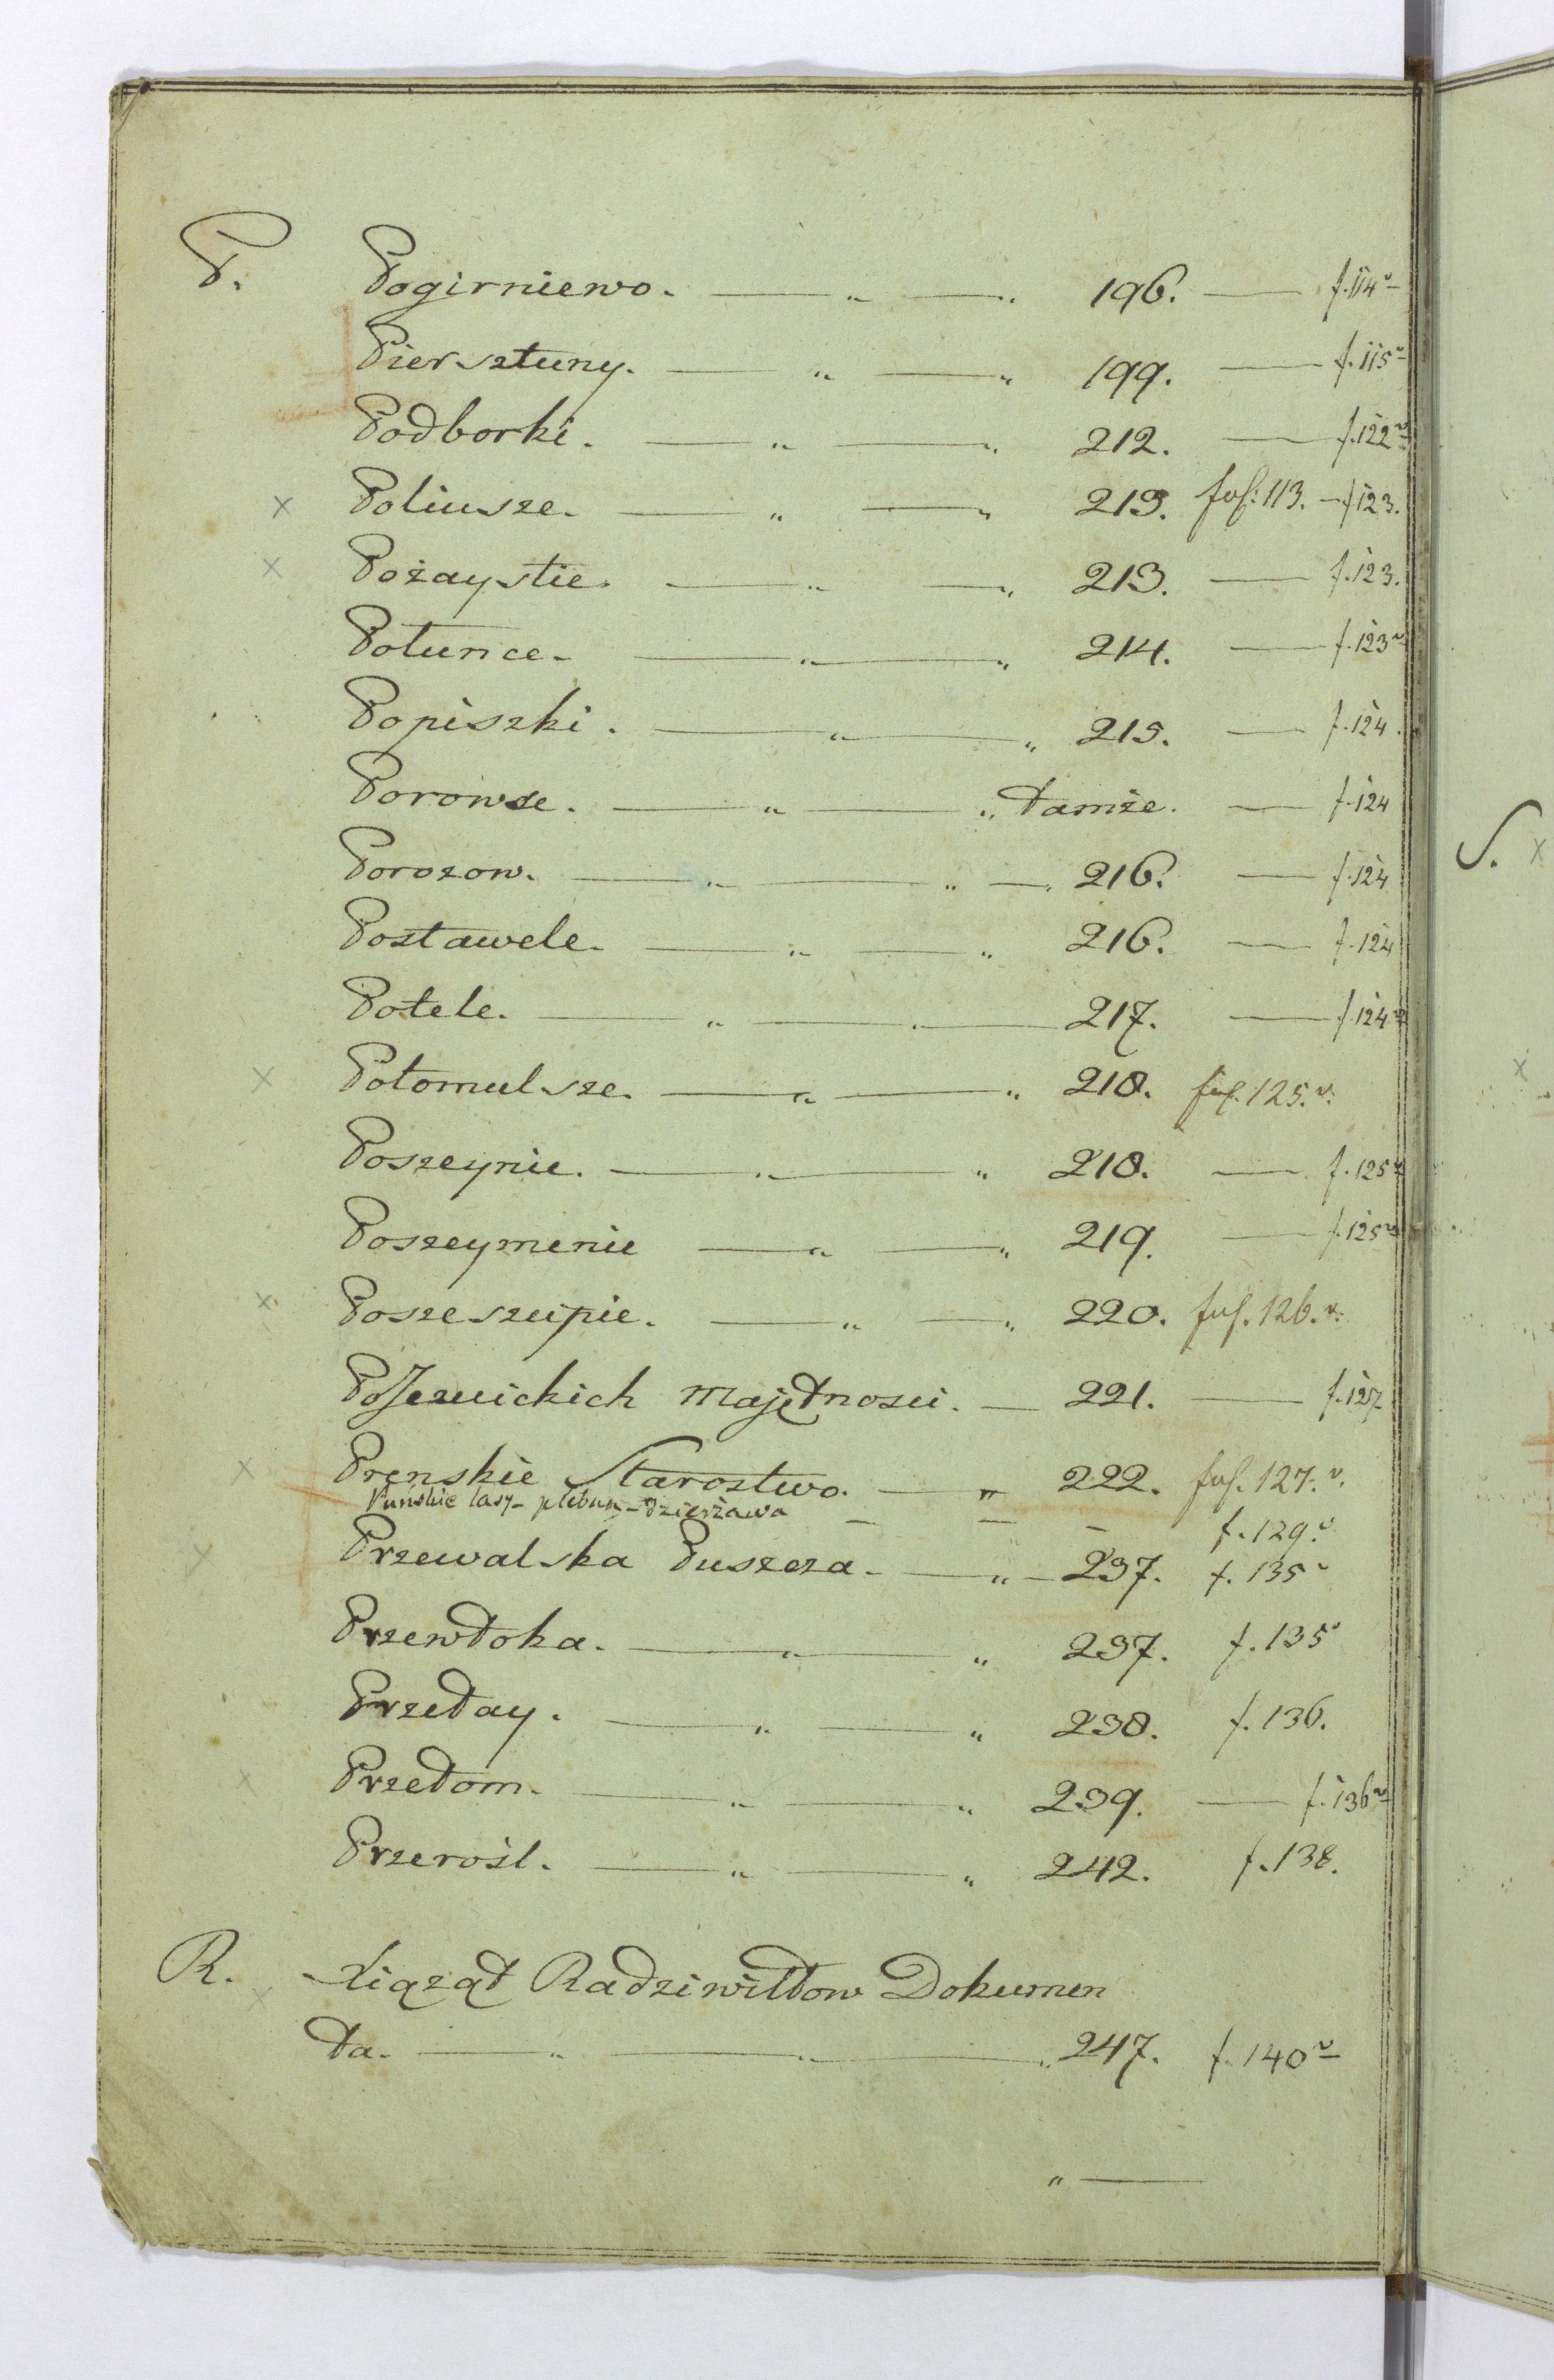 P. Pogirniewo. — „ — „ 196. — f. 114v
Piersztuny. — „ — „ 199. — f. 115v
Podborki. — „ — „ 212. — f. 122v
x Poliusze. — „ — „ 213. fol: 113. — f 123.
x Pożaystie. — „ — „ 213. — f. 123.
Potunce. — „ — „ 214. — f. 123v
Popiszki. — „ — „ 215. — f. 124.
Porowse. — „ — „ Tamże. — f. 124
Porozow. — „ — „ — „ 216. — f. 124
Postawele. — „ — „ 216. — f. 124
Potele. — „ — „ — 217. — f. 124v
x Potomulsze. — „ — „ 218. fol. 125. v.
Poszeynie. — „ — „ 218. — f. 125v
Poszeymenie — „ — „ 219. — f. 125v
x Poszeszupie. — „ — „ 220. fol. 126. v.
Majętnosci. — 221. — f. 127
x Prenskie Starostwo. — „ 222. fol. 127. v.
Puńskie lasy - plebun - dzierżawa — — — f. 129.v
x Przewalska Puszcza. — „ — 237. f. 135v
Przewłoka. — „ — „ 237. f. 135v
Przełay. — „ — „ 238. f. 136.
x Przełom. — „ — „ 239. — f. 136v
Przerośl. — „ — „ 242. f. 138.
R. x Xiążąt Radziwiłłow Dokumen
ta. — „ — „ — „ 247. f. 140v
„ —
S. x
x